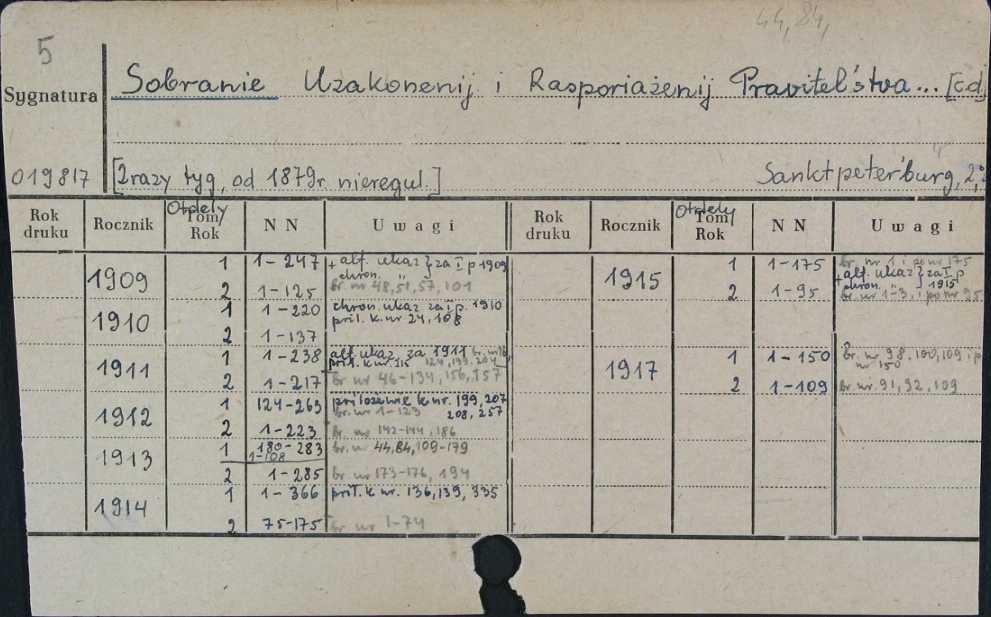 44, 84,
5
Sygnatura
Sobranie Uzakonenij i Rasporiażenij Pravitel'stva... [cd
019817
[2razy tyg, od 1879r. nieregul.]
Sanktpeterburg,
Rok druku Rocznik Otdely Tom Rok NN Uwagi Rok druku Rocznik Otdely Tom Rok NN Uwagi
1909 1 1-247 + alf. ukaz chron. " } za I p 1909
2 1-125 br. nr 48,51,57,101
1910 1 1-220 chron. ukaz za I p. 1910 pril. k. nr 24,108
2 1-137
1911 1 1-238 alf. ukaz. za 1911 pril. k. nr.
2 1-217 br nr 46-134, 156, 157
1912 1 124-263 priloženie k nr. 199, 207 208, 257 br. nr 1-123
2 1-223 br. nr 142-144, 186
1913 1 180-283 1-108 br. nr 44,84,109-179
2 1-285 br nr 173-176, 194
1914 1 1-366 pril. k nr. 136, 139, 335
2 75-175 br nr 1-74
1915 1 1-175 br. nr 1 i po nr 175 + alf. ukaz chron. " } za I p 1915
2 1-95 br. nr 1-3, i po nr 95
1917 1 1-150 br. nr 98, 100, 109 i p nr 150
2 1-109 br. nr. 91, 92, 109